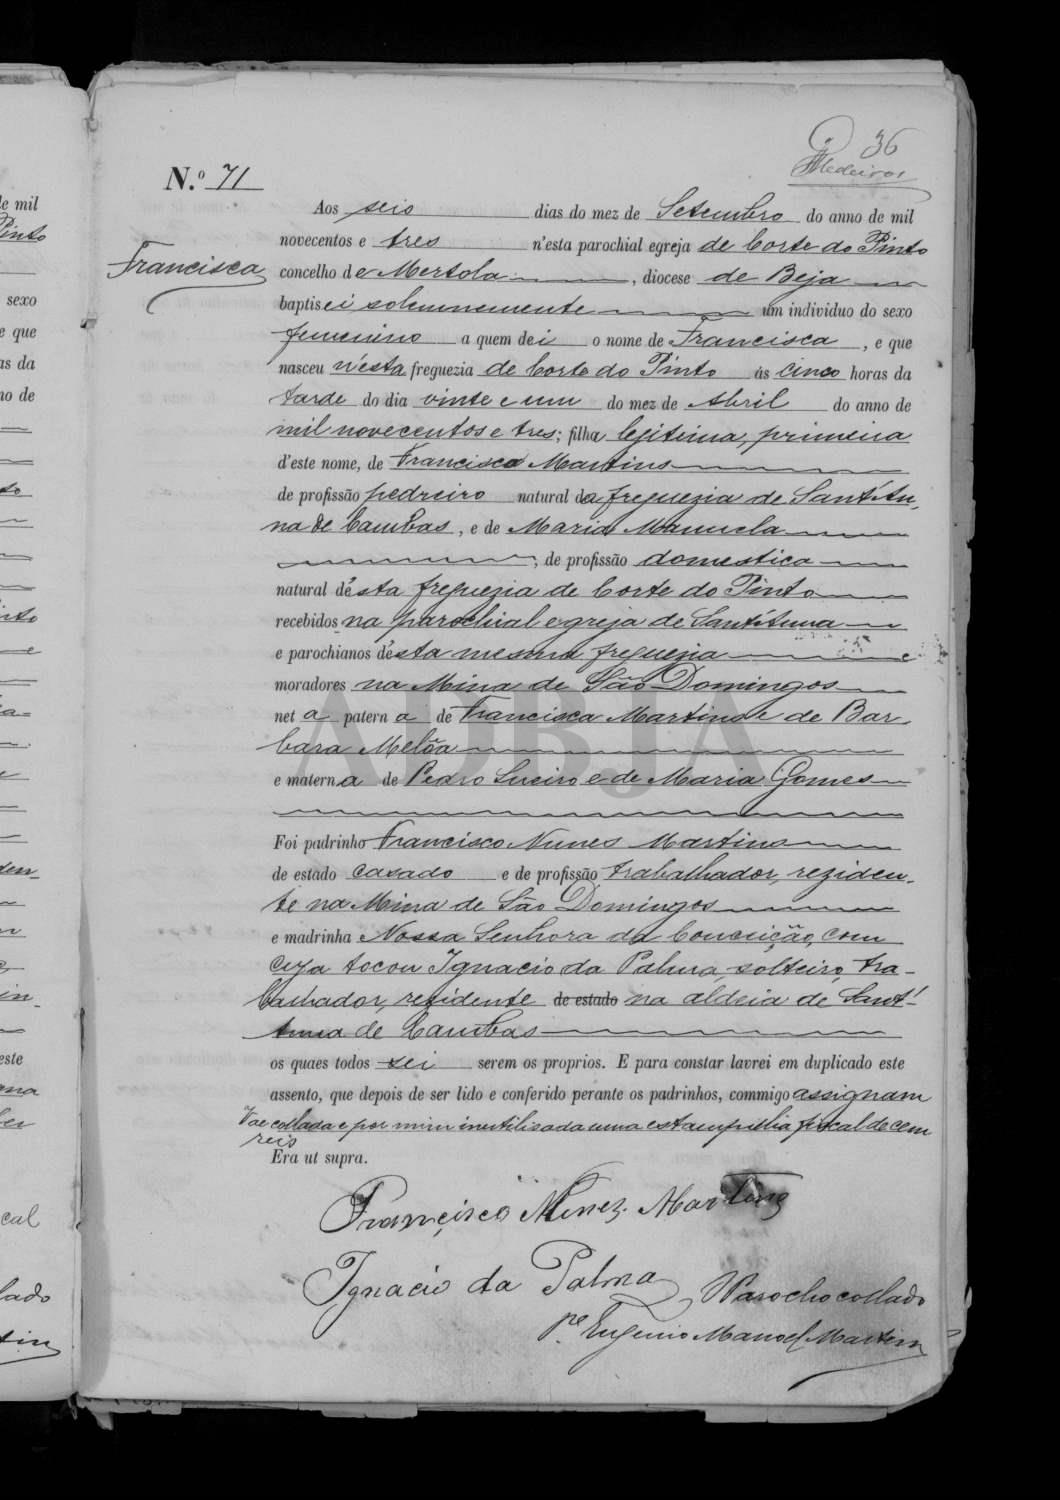 36
Medeiros
N.º 71
Aos seis dias do mez de Setembro do anno de mil
novecentos e tres n'esta parochial egreja de Corte do Pinto
Francisca
concelho de Mertola, diocese de Beja
baptisei solemnemente um individuo do sexo
femenino a quem dei o nome de Francisca, e que
nasceu n'esta freguezia de Corte do Pinto ás cinco horas da
tarde do dia vinte e um do mez de Abril do anno de
mil novecentos e tres; filha legitima, primeira
d'este nome, de Francisco Martins
de profissão pedreiro natural da freguezia de Sant'An-
na de Cambas, e de Maria Manuela
, de profissão domestica
natural d'esta freguezia de Corte do Pinto
recebidos na parochial egreja de Sant'Anna
e parochianos d'esta mesma freguezia e
moradores na Mina de São Domingos
neta paterna de Francisca Martins e de Bar-
bara Melõa
e materna de Pedro Sueiro e de Maria Gomes
Foi padrinho Francisco Nunes Martins
de estado casado e de profissão trabalhador, reziden-
te na Mina de São Domingos
e madrinha Nossa Senhora da Conceição, com
cuja tocou Ignacio da Palma, solteiro, tra-
balhador, rezidente de estado na aldeia de Sant'
Anna de Cambas
os quaes todos sei serem os proprios. E para constar lavrei em duplicado este
assento, que depois de ser lido e conferido perante os padrinhos, commigo assignam
Vae collada e por mim inutilisada uma estampilha fiscal de cem
reis
Era ut supra.
Francisco Nunez Martins
Ignacio da Palma
O Parocho collado
P.e Eugenio Manoel Martins
ADBJA